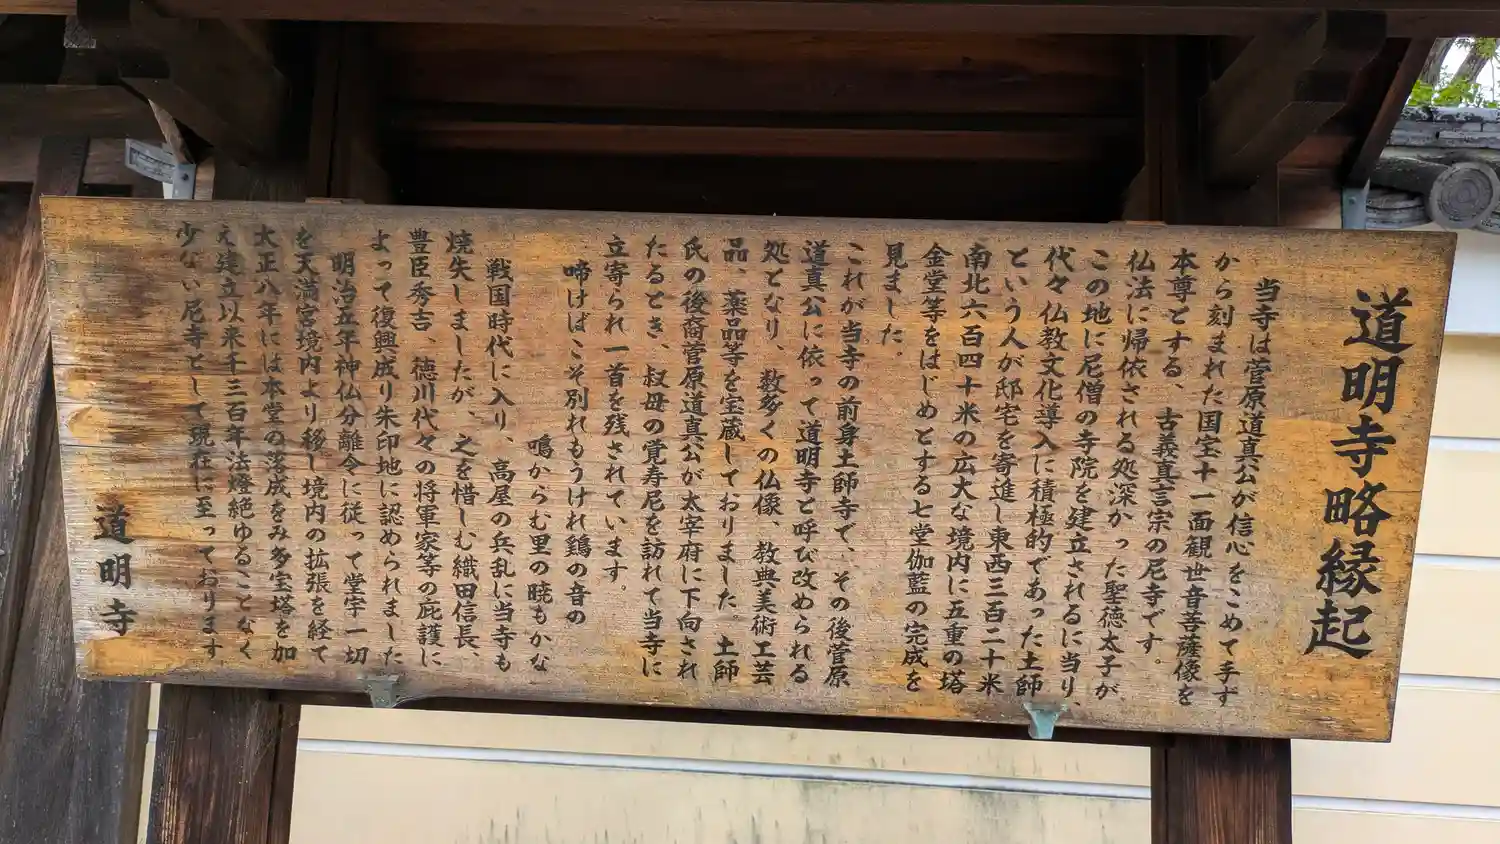 道明寺略縁起
当寺は菅原道真公が信心をこめて手ず
から刻まれた国宝十一面観世音菩薩像を
本尊とする、古義真言宗の尼寺です。
仏法に帰依される処深かった聖徳太子が、
この地に尼僧の寺院を建立されるに当り、
代々仏教文化導入に積極的であった土師
という人が邸宅を寄進し東西三百二十米
南北六百四十米の広大な境内に五重の塔
金堂等をはじめとする七堂伽藍の完成を
見ました。
これが当寺の前身土師寺で、その後菅原
道真公に依って道明寺と呼び改められる
処となり、数多くの仏像、教典美術工芸
品、薬品等を宝蔵しておりました。土師
氏の後裔菅原道真公が太宰府に下向され
たるとき、叔母の覚寿尼を訪れて当寺に
立寄られ一首を残されています。
啼けばこそ別れもうけれ鶏の音の
鳴からむ里の暁もかな
戦国時代に入り、高屋の兵乱に当寺も
焼失しましたが、之を惜しむ織田信長、
豊臣秀吉、徳川代々の将軍家等の庇護に
よって復興成り朱印地に認められました
明治五年神仏分離令に従って堂宇一切
を天満宮境内より移し境内の拡張を経て
大正八年には本堂の落成をみ多宝塔を加
え建立以来千三百年法燈絶ゆることなく
少ない尼寺として現在に至っております
道明寺